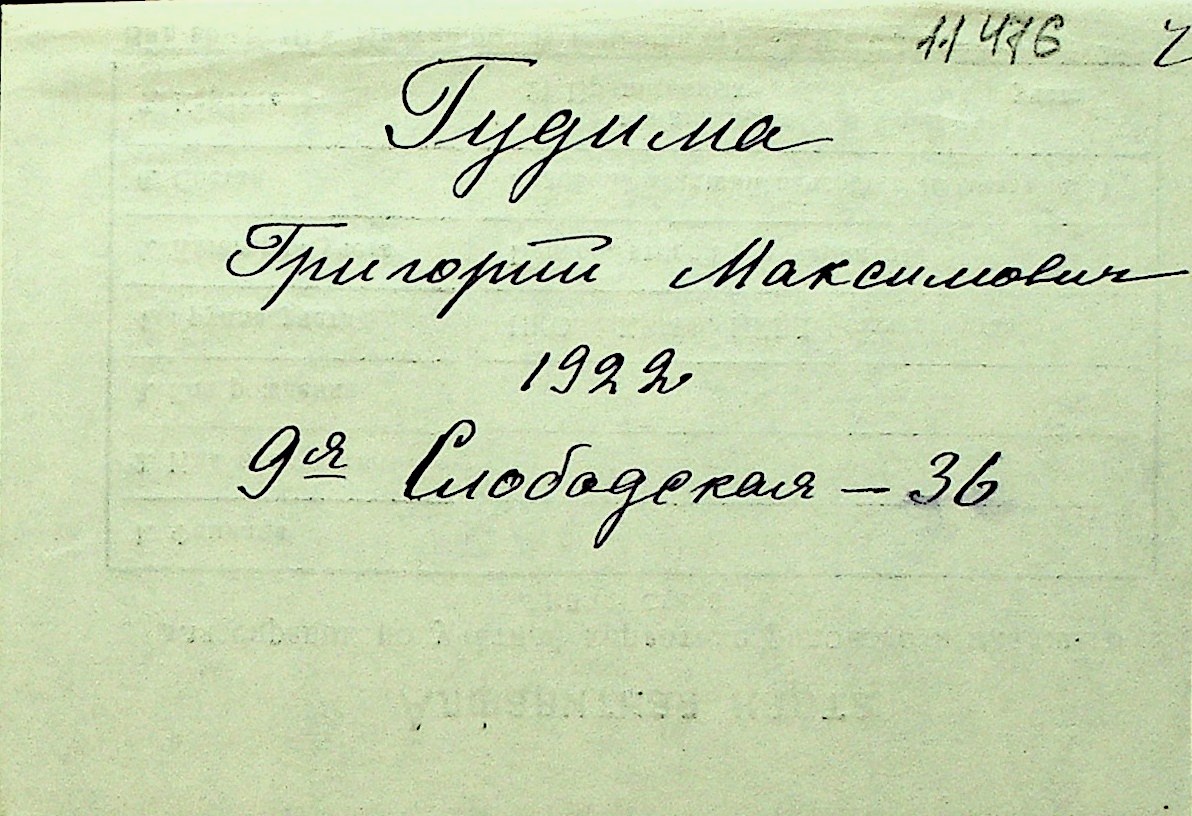 11476
Гудима
Григорий Максимович
1922
9я Слободская - 36